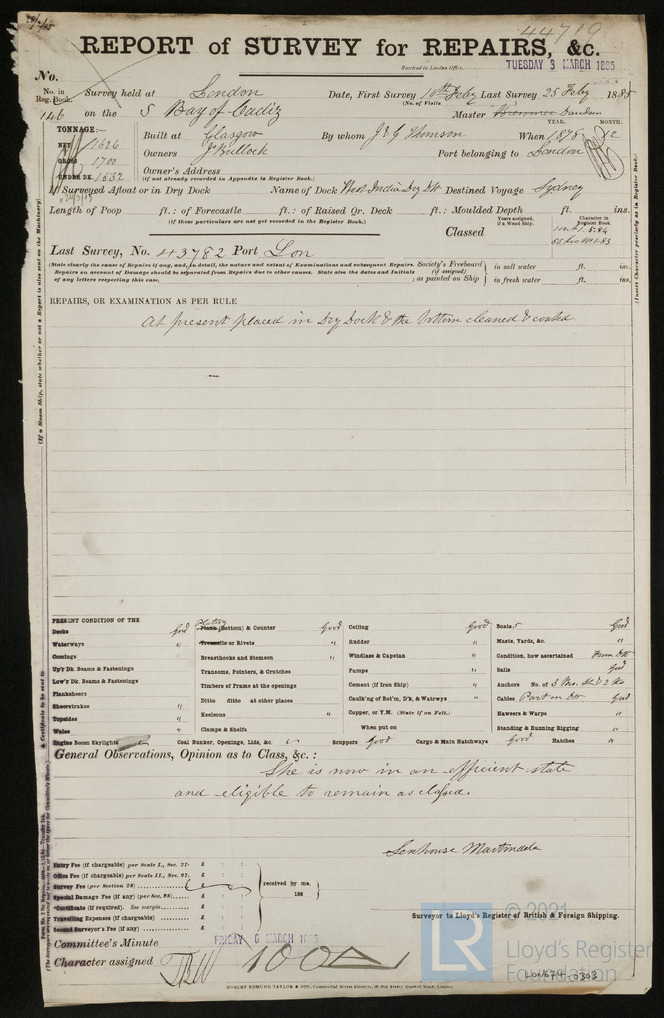 44719
REPORT of SURVEY for REPAIRS, &c.
Received in London Office, TUESDAY 3 MARCH 1885
No.
No. in Reg. Book.
Survey held at London Date, First Survey 10th Feby Last Survey 25 Feby 1885
(No. of Visits
146 on the S Bay of Cadiz Master Dandson
TONNAGE:— YEAR. MONTH.
NET 1626 Built at Glasgow By whom J & G Thomson When 1878 12
GROSS 1700 Owners J Bullock Port belonging to London
UNDER DK. 1552 Owner's Address
(if not already recorded in Appendix to Register Book.)
If Surveyed Afloat or in Dry Dock Name of Dock West India Dry Dk Destined Voyage Sydney
Length of Poop ft.: of Forecastle ft.: of Raised Qr. Deck ft.: Moulded Depth ft. ins.
(if these particulars are not yet recorded in the Register Book.)
Classed
Years assigned, if a Wood Ship.
Character in Register Book.
Last Survey, No. 43782 Port Lon
(State clearly the cause of Repairs if any, and, in detail, the nature and extent of Examinations and subsequent Repairs. Society's Freeboard in salt water ft. ins.
Repairs on account of Damage should be separated from Repairs due to other causes. State also the dates and Initials (if assigned)
of any letters respecting this case. ; as painted on Ship in fresh water ft. ins.
REPAIRS, OR EXAMINATION AS PER RULE
At present placed in Dry Dock & the bottom cleaned & coated
PRESENT CONDITION OF THE
Decks Good
Waterways "
Comings
Up'r Dk. Beams & Fastenings
Low'r Dk. Beams & Fastenings
Planksheers
Sheerstrakes "
Topsides "
Wales "
Engine Room Skylights
Plating
Plank (Bottom) & Counter Good
Treenails or Rivets "
Breasthooks and Stemson "
Transoms, Pointers, & Crutches
Timbers of Frame at the openings
Ditto ditto at other places
Keelsons
Clamps & Shelfs
Coal Bunker, Openings, Lids, &c.
Ceiling Good
Rudder "
Windlass & Capstan "
Pumps "
Cement (if Iron Ship) "
Caulk'ng of Bot'm, D'k, & Watrwys "
Copper, or Y.M. (State if on Felt.)
When put on
Scuppers Good Cargo & Main Hatchways Good
Boats 5 Good
Masts, Yards, &c. "
Condition, how ascertained From Dk
Sails Good
Anchors No. of 3
Cables Part on Dk Good
Hawsers & Warps "
Standing & Running Rigging "
Hatches "
General Observations, Opinion as to Class, &c. :
She is now in an efficient state
and eligible to remain as classed.
Senhouse Martindale
Entry Fee (if chargeable) per Scale I., Sec. 27. £ : :
Office Fee (if chargeable) per Scale II., Sec. 27. £ : :
Survey Fee (per Section 28) £ : :
Special Damage Fee (if any) (per Sec. 28) £ : :
*Certificate (if required). See margin £ : :
Travelling Expenses (if chargeable) £ : :
Second Surveyor's Fee (if any) £ : :
received by me,
188
Surveyor to Lloyd's Register of British & Foreign Shipping.
Committee's Minute FRIDAY 6 MARCH 1885
Character assigned 100A
ROBERT EDMUND TAYLOR & SON
© 2021
LR
Lloyd's Register
Foundation
LON674-0303
(If a Steam Ship, state whether or not a Report is also sent on the Machinery.)
(Insert Character precisely as in Register Book.)